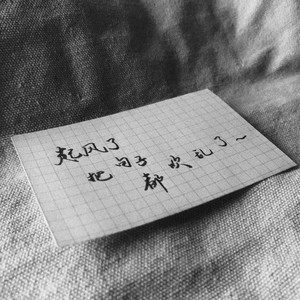 起风了
把句子
都吹乱了~